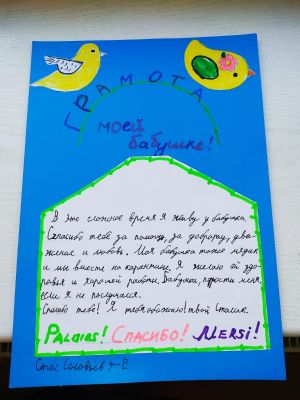 ГРАМОТА
моей
бабушке!
В это сложное время я живу у бабушки.
Спасибо тебе за помощь, за доброту, ува-
жение и любовь. Моя бабушка тоже медик
и мы вместе на карантине. Я желаю ей здо-
ровья и хорошей работы. Бабушка, прости меня,
если я не послушался.
Спасибо тебе! Я тебя обожаю! твой Стасик.
PALDIES! СПАСИБО! MERSI!
Стас Соловьёв